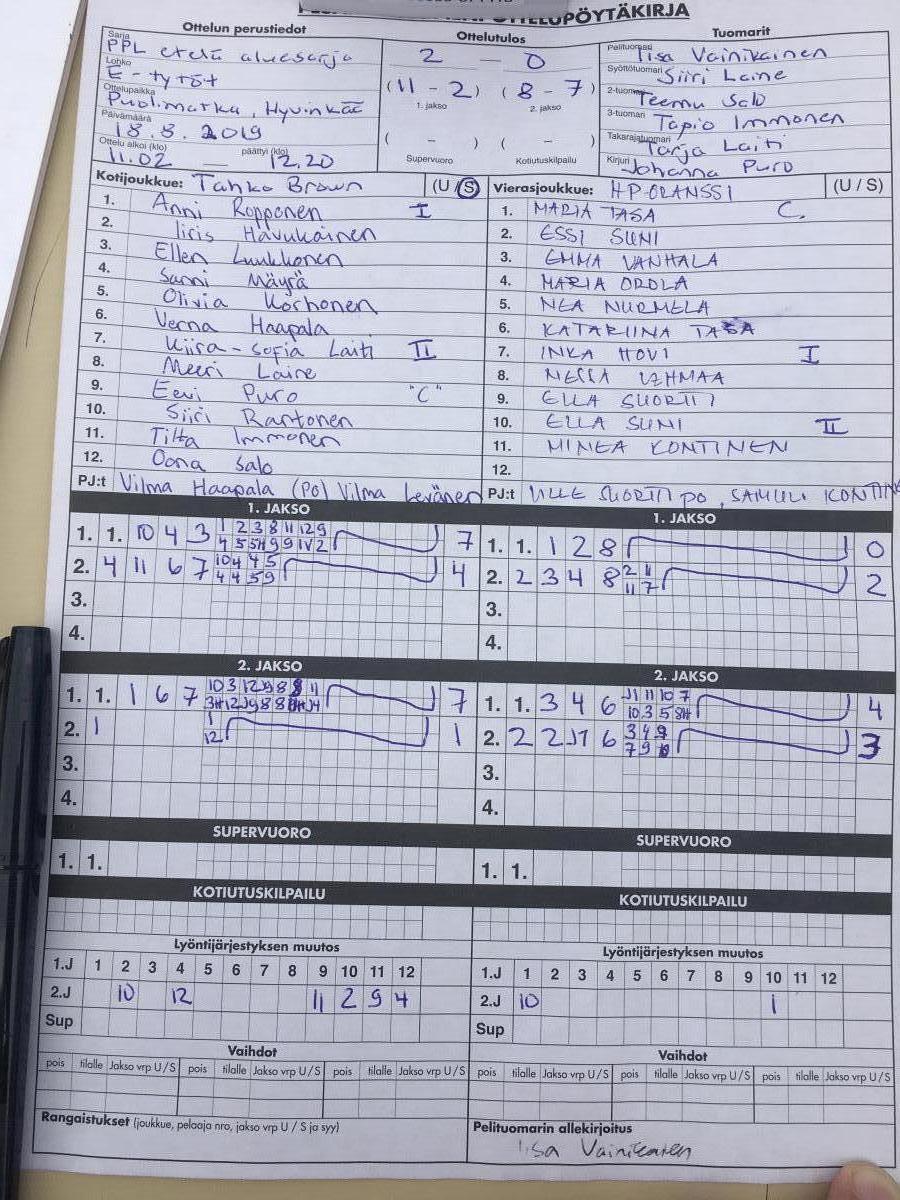 OTTELUPÖYTÄKIRJA
Ottelun perustiedot
Sarja
PPL etelä aluesarja
Lohko
E-tytöt
Ottelupaikka
Puolimatka, Hyvinkää
Päivämäärä
18.8.2019
Ottelu alkoi (klo) päättyi (klo)
11.02 — 12.20
Ottelutulos
2 — 0
(11 - 2) (8 - 7)
1. jakso 2. jakso
( - ) ( - )
Supervuoro Kotiutuskilpailu
Tuomarit
Pelituomari Iisa Vainikainen
Syöttötuomari Siiri Laine
2-tuomari Teemu Salo
3-tuomari Tapio Immonen
Takarajatuomari Tarja Laiti
Kirjuri Johanna Puro
Kotijoukkue: Tahko Brown (U / S)
1. Anni Ropponen I
2. Iiris Havukainen
3. Ellen Luukkonen
4. Sanni Mäyrä
5. Olivia Korhonen
6. Verna Haapala
7. Kiira-Sofia Laiti II
8. Meeri Laine
9. Eevi Puro "C"
10. Siiri Rantonen
11. Tilta Immonen
12. Oona Salo
PJ:t Vilma Haapala (PO) Vilma Levänen
Vierasjoukkue: HP ORANSSI (U / S)
1. MARIA TASA C.
2. ESSI SUNI
3. EMMA VANHALA
4. MARIA OROLA
5. NEA NURMELA
6. KATARIINA TASA
7. INKA HOVI I
8. NESSA LEHMAA
9. ELLA SUORTTI
10. ELLA SUNI II
11. MINEA KONTINEN
12.
PJ:t VILLE SUORTTI PO, SAMULI
1. JAKSO
1. 1. 10 4 3 1 2 3 8 11 12 9 7
2. 4 11 6 7 10 4 4 5 4
4 4 5 9
3.
4.
1. JAKSO
1. 1. 1 2 8 0
2. 2 3 4 8 2 11 2
11 7
3.
4.
2. JAKSO
1. 1. 1 6 7 7
2. 1 1 1
12
3.
4.
2. JAKSO
1. 1. 3 4 6 J1 11 10 7 4
10 3 5 8H
2. 2 2 J1 6 3 4 9 3
7 9
3.
4.
SUPERVUORO
1. 1.
SUPERVUORO
1. 1.
KOTIUTUSKILPAILU
KOTIUTUSKILPAILU
Lyöntijärjestyksen muutos
1.J 1 2 3 4 5 6 7 8 9 10 11 12
2.J 10 12 11 2 9 4
Sup
Lyöntijärjestyksen muutos
1.J 1 2 3 4 5 6 7 8 9 10 11 12
2.J 10 1
Sup
Vaihdot
pois tilalle Jakso vrp U/S pois tilalle Jakso vrp U/S pois tilalle Jakso vrp U/S
Vaihdot
pois tilalle Jakso vrp U/S pois tilalle Jakso vrp U/S pois tilalle Jakso vrp U/S
Rangaistukset (joukkue, pelaaja nro, jakso vrp U / S ja syy)
Pelituomarin allekirjoitus
Iisa Vainikainen